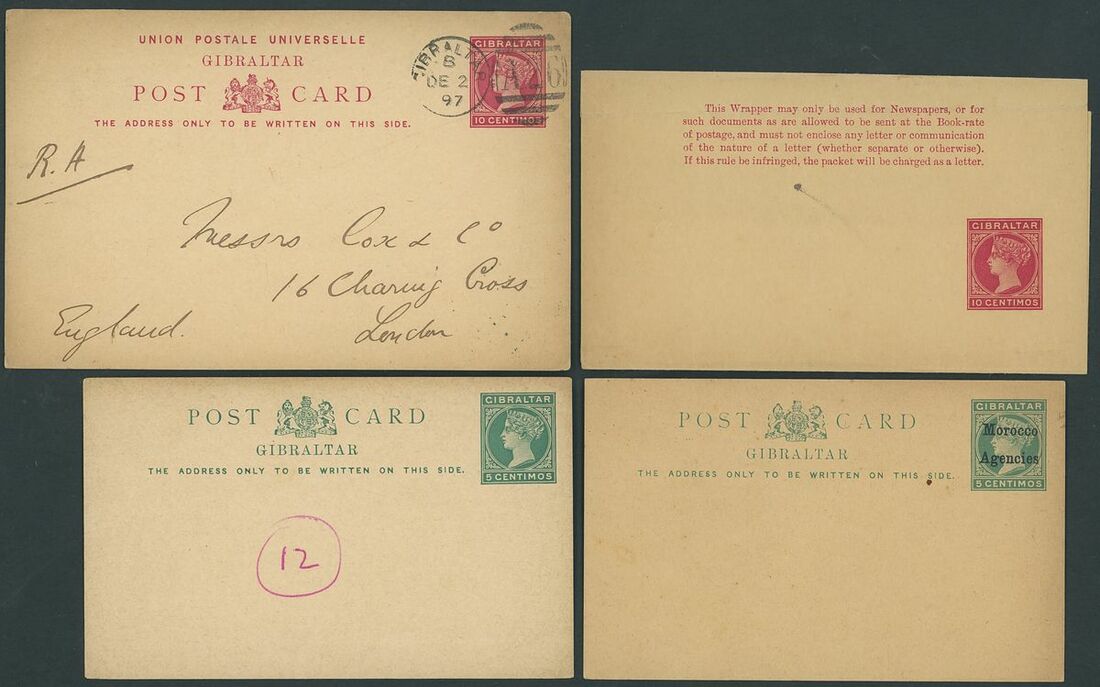 UNION POSTALE UNIVERSELLE
GIBRALTAR
POST CARD
THE ADDRESS ONLY TO BE WRITTEN ON THIS SIDE.
GIBRALTAR
B
DE 2
97
A 26
GIBRALTAR
10 CENTIMOS
R.A
Messrs Cox & Co
16 Charing Cross
London
England.
This Wrapper may only be used for Newspapers, or for
such documents as are allowed to be sent at the Book-rate
of postage, and must not enclose any letter or communication
of the nature of a letter (whether separate or otherwise).
If this rule be infringed, the packet will be charged as a letter.
GIBRALTAR
10 CENTIMOS
POST CARD
GIBRALTAR
THE ADDRESS ONLY TO BE WRITTEN ON THIS SIDE.
GIBRALTAR
5 CENTIMOS
12
POST CARD
GIBRALTAR
THE ADDRESS ONLY TO BE WRITTEN ON THIS SIDE.
GIBRALTAR
Morocco
Agencies
5 CENTIMOS